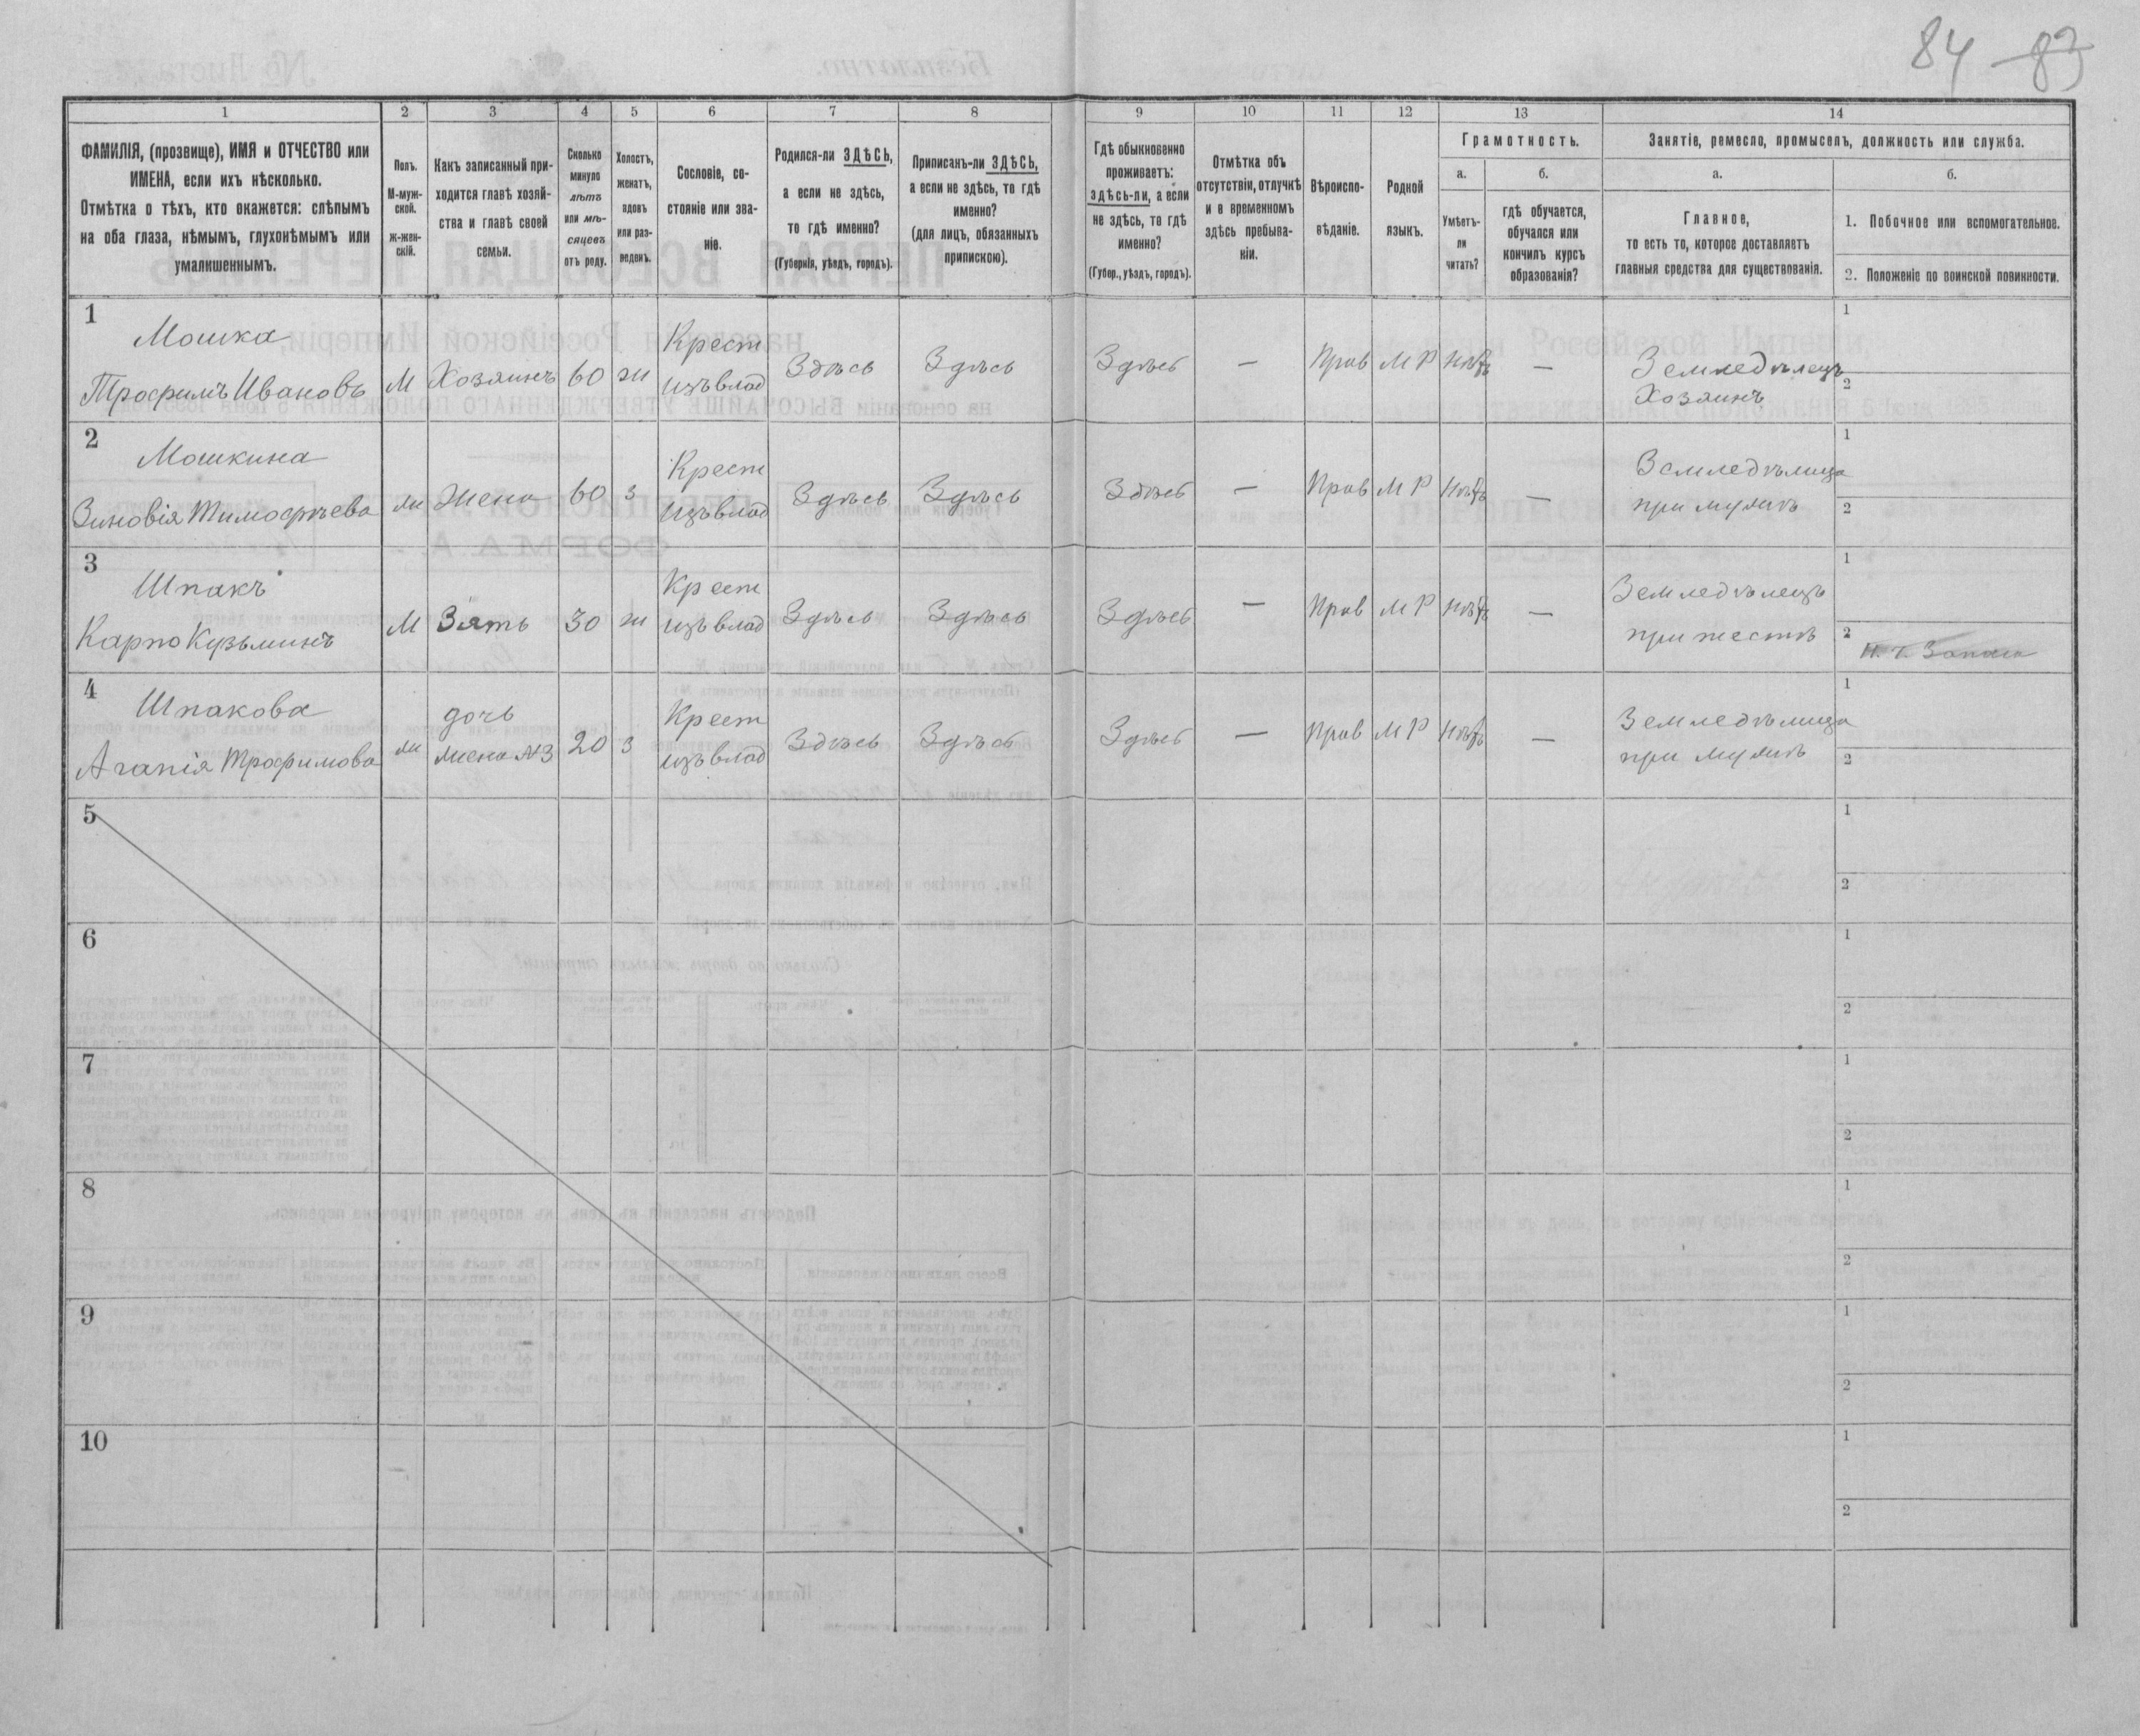 84 – 83
1 2 3 4 5 6 7 8 9 10 11 12 13 14
ФАМИЛІЯ, (прозвище), ИМЯ и ОТЧЕСТВО или
ИМЕНА, если ихъ нѣсколько.
Отмѣтка о тѣхъ, кто окажется: слѣпымъ
на оба глаза, нѣмымъ, глухонѣмымъ или
умалишеннымъ.
Полъ.
М-муж-
ской.
Ж-жен-
скій.
Какъ записанный при-
ходится главѣ хозяй-
ства и главѣ своей
семьи.
Сколько
минуло
лѣтъ
или мѣ-
сяцевъ
отъ роду.
Холостъ,
женатъ,
вдовъ
или раз-
веденъ.
Сословіе, со-
стояніе или зва-
ніе.
Родился-ли ЗДѢСЬ,
а если не здѣсь,
то гдѣ именно?
(Губернія, уѣздъ, городъ).
Приписанъ-ли ЗДѢСЬ,
а если не здѣсь, то гдѣ
именно?
(для лицъ, обязанныхъ
припискою).
Гдѣ обыкновенно
проживаетъ:
здѣсь-ли, а если
не здѣсь, то гдѣ
именно?
(Губер., уѣздъ, городъ).
Отмѣтка объ
отсутствіи, отлучкѣ
и о временномъ
здѣсь пребыва-
ніи.
Вѣроиспо-
вѣданіе.
Родной
языкъ.
Грамотность.
а.
Умѣетъ-
ли
читать?
б.
гдѣ обучается,
обучался или
кончилъ курсъ
образованія?
Занятіе, ремесло, промыселъ, должность или служба.
а.
Главное,
то есть то, которое доставляетъ
главныя средства для существованія.
б.
1. Побочное или вспомогательное.
2. Положеніе по воинской повинности.
1
Мошка
Трофимъ Ивановъ
М
Хозяинъ
60
ж
Крест
изъ влад
Здѣсь
Здѣсь
Здѣсь
—
Прав
М Р
Нѣтъ
—
Земледѣлецъ
Хозяинъ
1
2
2
Мошкина
Зиновія Тимофѣева
ж
Жена
60
з
Крест
изъ влад
Здѣсь
Здѣсь
Здѣсь
—
Прав
М Р
Нѣтъ
—
Земледѣлица
при мужѣ
1
2
3
Шпакъ
Карпо Кузьминъ
М
Зять
30
ж
Крест
изъ влад
Здѣсь
Здѣсь
Здѣсь
—
Прав
М Р
Нѣтъ
—
Земледѣлецъ
при тестѣ
1
2
4
Шпакова
Агапія Трофимова
ж
дочь
жена №3
20
з
Крест
изъ влад
Здѣсь
Здѣсь
Здѣсь
—
Прав
М Р
Нѣтъ
—
Земледѣлица
при мужѣ
1
2
5
1
2
6
1
2
7
1
2
8
1
2
9
1
2
10
1
2